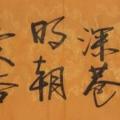 深巷
明朝